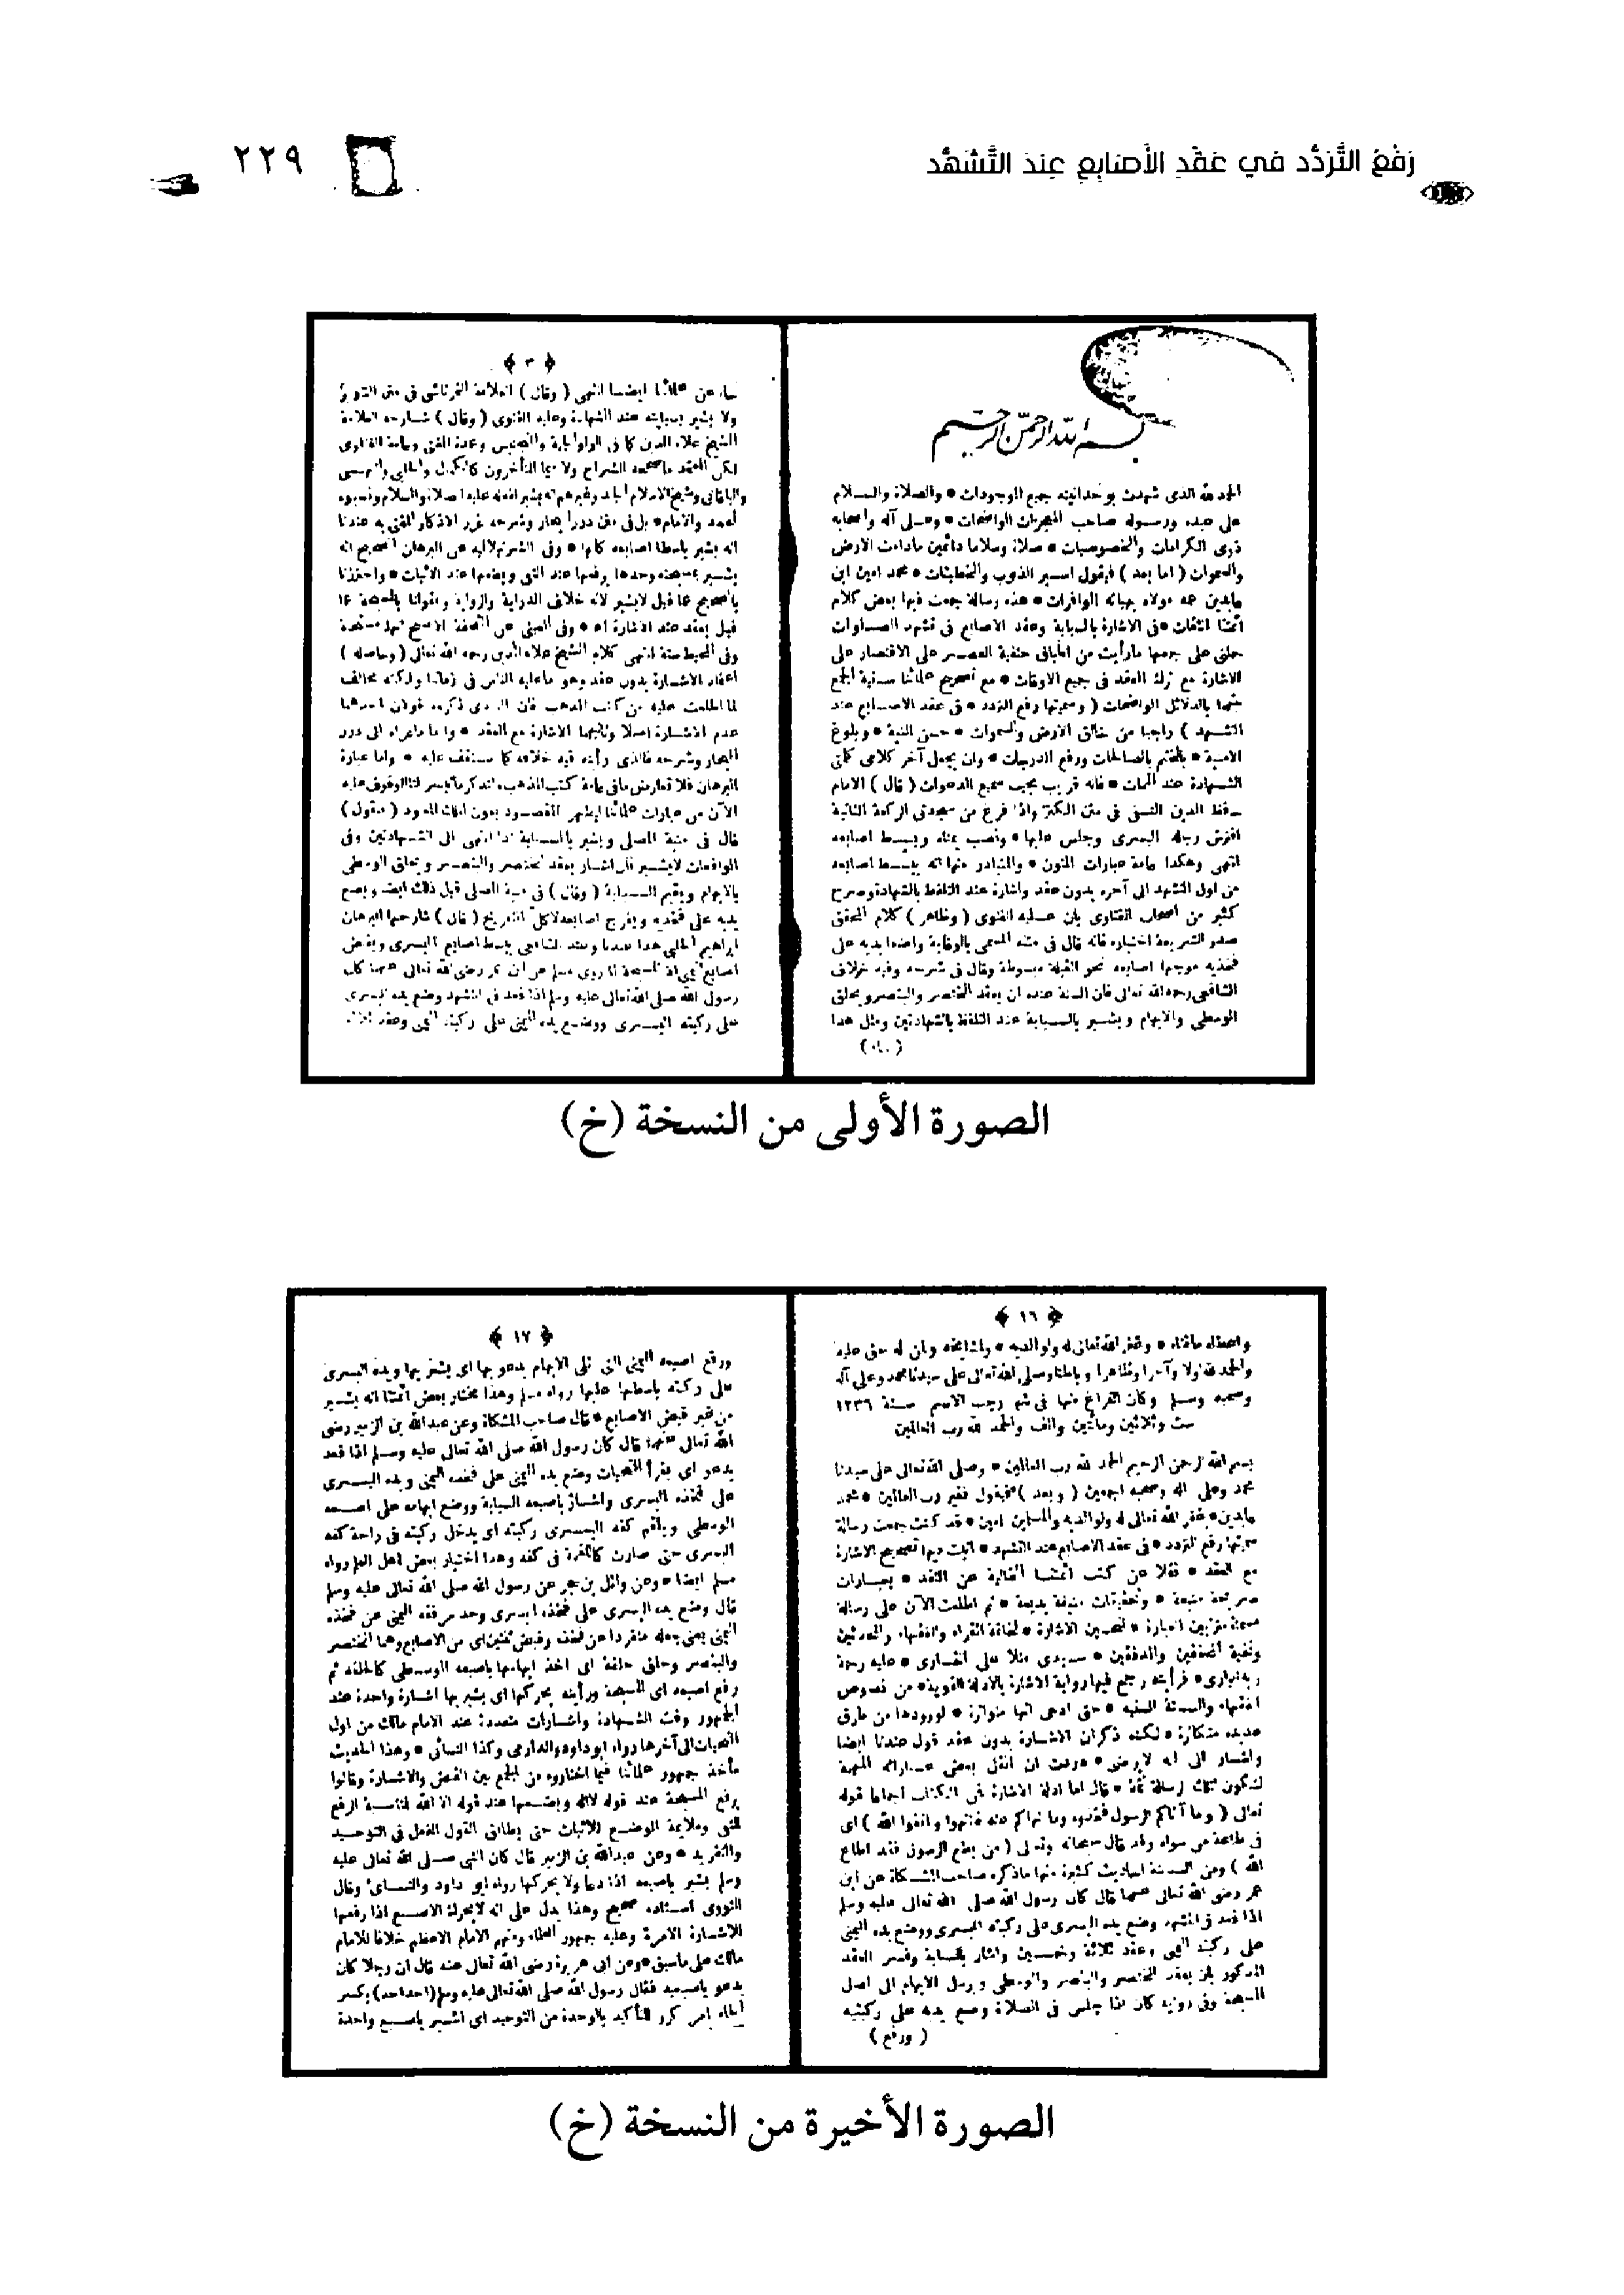 رَفْعُ التَّرَدُّد في عَقْدِ الأَصَابِعِ عِندَ التَّشَهُّد
٢٢٩
بسم الله الرحمن الرحيم
الحمد لله الذى شهدت بوحدانيته جميع الموجودات * والصلاة والسلام
على عبده ورسوله صاحب المعجزات الواضحات * وعلى آله واصحابه
ذوى الكرامات والخصوصيات * صلاة وسلاما دائمين مادامت الارض
والسموات ( اما بعد ) فيقول اسير الذنوب والخطيئات * محمد امين ابن
عابدين عمه مولاه بهباته الوافرات * هذه رسالة جمعت فيها بعض كلام
ائمتنا الثقات * فى الاشارة بالسبابة وعقد الاصابع فى تشهد الصلوات
حملنى على جمعها مارأيت من اطباق حنفية العصر على الاقتصار على
الاشارة مع ترك العقد فى جميع الاوقات * مع تصحيح علمائنا سنية الجمع
بينهما بالدلائل الواضحات ( وسميتها رفع التردد * فى عقد الاصابع عند
التشهد ) راجيا من خالق الارض والسموات * حسن النية * وبلوغ
الامنية * بالختم بالصالحات ورفع الدرجات * وان يجعل آخر كلامى كلمتى
الشهادة عند الممات * فانه قريب مجيب سميع الدعوات ( قال ) الامام
حافظ الدين النسفى فى متن الكنز واذا فرغ من سجدتى الركعة الثانية
افترش رجله اليسرى وجلس عليها * ونصب يمناه وبسط اصابعه
انتهى وهكذا عامة عبارات المتون * والمتبادر منها انه يبسط اصابعه
من اول التشهد الى آخره بدون عقد واشارة عند التلفظ بالشهادة وصرح
كثير من اصحاب الفتاوى بان عليه الفتوى ( وظاهر ) كلام المحقق
صدر الشريعة اختياره فانه قال فى متنه المسمى بالوقاية واضعا يديه على
فخذيه موجها اصابعه نحو القبلة مبسوطة وقال فى شرحه وفيه خلاف
الشافعى رحمه الله تعالى فان السنة عنده ان يعقد الخنصر والبنصر ويحلق
الوسطى والابهام ويشير بالسبابة عند التلفظ بالشهادتين ومثل هذا
﴿ ٣ ﴾
جاء عن علمائنا ايضا انتهى ( وقال ) العلامة التمرتاشى فى متن التنوير
ولا يشير بسبابته عند الشهادة وعليه الفتوى ( وقال ) شارحه العلامة
الشيخ علاء الدين كما فى الولوالجية والتجنيس وعمدة المفتى وعامة الفتاوى
لكن المعتمد ماصححه الشراح ولا سيما المتأخرون كالكمال والحلبى والبهنسى
والباقانى وشيخ الاسلام الجد وغيرهم انه يشير لفعله عليه الصلاة والسلام ونسبوه
لمحمد والامام * بل فى متن درر البحار وشرحه غرر الاذكار المفتى به عندنا
انه يشير باسطا اصابعه كلها * وفى الشرنبلالية عن البرهان الصحيح انه
يشير بمسبحته وحدها يرفعها عند النفى ويضعها عند الاثبات * واحترزنا
بالصحيح عما قيل لا يشير لانه خلاف الدراية والرواية وبقولنا بالمسبحة عما
قيل يعقد عند الاشارة اه * وفى العينى عن التحفة الاصح انها مستحبة
وفى المحيط سنة انتهى كلام الشيخ علاء الدين رحمه الله تعالى ( وحاصله )
اعتماد الاشارة بدون عقد وهو ماعليه الناس فى زماننا ولكنه مخالف
لما اطلعت عليه من كتب المذهب فان الذى ذكروه قولان احدهما
عدم الاشارة اصلا وثانيهما الاشارة مع العقد * واما ماعزاه الى درر
البحار وشرحه فالذى رأيته فيه خلافه كما ستقف عليه * واما عبارة
البرهان فلا تعارض مافى عامة كتب المذهب ولنذكر ماتيسر لنا الوقوف عليه
الآن من عبارات علمائنا ليظهر المقصود بعون الملك المعبود ( فنقول )
قال فى منية المصلى ويشير بالسبابة اذا انتهى الى الشهادتين وفى
الواقعات لا يشير فان اشار يعقد الخنصر والبنصر ويحلق الوسطى
بالابهام ويقيم السبابة ( وقال ) فى منية المصلى قبل ذلك ايضا ويضع
يديه على فخذيه ويفرج اصابعه لا كل التفريج ( قال ) شارحها البرهان
ابراهيم الحلبى هذا عندنا وعند الشافعى يبسط اصابع اليسرى ويقبض
اصابع اليمنى الا المسبحة لما روى مسلم عن ابن عمر رضى الله تعالى عنهما كان
رسول الله صلى الله تعالى عليه وسلم اذا قعد فى التشهد وضع يده اليسرى
على ركبته اليسرى ووضع يده اليمنى على ركبته اليمنى وعقد
الصورة الأولى من النسخة (خ)
﴿ ١٦ ﴾
واعطاه ماتمناه * وغفر الله تعالى له ولوالديه * ولمشايخه ولمن له حق عليه
والحمد لله اولا وآخرا وظاهرا وباطنا وصلى الله تعالى على سيدنا محمد وعلى آله
وصحبه وسلم وكان الفراغ منها فى شهر رجب الاصم سنة ١٢٣٦
ست وثلاثين ومائتين والف والحمد لله رب العالمين
بسم الله الرحمن الرحيم الحمد لله رب العالمين * وصلى الله تعالى على سيدنا
محمد وعلى آله وصحبه اجمعين ( وبعد ) فيقول فقير رب العالمين * محمد
عابدين * غفر الله تعالى له ولوالديه والمسلمين امين * قد كنت جمعت رسالة
سميتها رفع التردد * فى عقد الاصابع عند التشهد * اثبت فيها تصحيح الاشارة
مع العقد * نقلا عن كتب ائمتنا الخالية عن النقد * بعبارات
صريحة منيعة * وتحقيقات منيفة بديعة * ثم اطلعت الآن على رسالة
مسماة بتزيين العبارة * لتحسين الاشارة * لخاتمة القراء والفقهاء والمحدثين
ونخبة المحققين والمدققين * سيدى منلا على القارى * عليه رحمة
ربه البارى * فرأيته رجح فيها رواية الاشارة بالادلة القوية * من نصوص
الفقهاء والسنة السنية * حتى ادعى انها متواترة * لورودها من طرق
عديدة متكاثرة * لكنه ذكر ان الاشارة بدون عقد قول عندنا ايضا
واشار الى انه لا يرضى * فاردت ان انقل بعض عباراته المهمة
لتكون لتلك الرسالة تتمة * قال اما ادلة الاشارة فمن الكتاب اجمالا قوله
تعالى ( وما آتاكم الرسول فخذوه وما نهاكم عنه فانتهوا واتقوا الله ) اى
فى طاعة من سواه وقد قال سبحانه وتعالى ( من يطع الرسول فقد اطاع
الله ) ومن السنة احاديث كثيرة منها ماذكره صاحب المشكاة عن ابن
عمر رضى الله تعالى عنهما قال كان رسول الله صلى الله تعالى عليه وسلم
اذا قعد فى التشهد وضع يده اليسرى على ركبته اليسرى ووضع يده اليمنى
على ركبته اليمنى وعقد ثلاثة وخمسين واشار بالسبابة وفسر العقد
المذكور بان يعقد الخنصر والبنصر والوسطى ويرسل الابهام الى اصل
المسبحة وفى رواية كان اذا جلس فى الصلاة وضع يديه على ركبتيه
( ورفع )
﴿ ١٧ ﴾
ورفع اصبعه اليمنى التى تلى الابهام يدعو بها اى يشير بها ويده اليسرى
على ركبته باسطها عليها رواه مسلم وهذا مختار بعض ائمتنا انه يشير
من غير قبض الاصابع * قال صاحب المشكاة وعن عبد الله بن الزبير رضى
الله تعالى عنهما قال كان رسول الله صلى الله تعالى عليه وسلم اذا قعد
يدعو اى يقرأ التحيات وضع يده اليمنى على فخذه اليمنى ويده اليسرى
على فخذه اليسرى واشار باصبعه السبابة ووضع ابهامه على اصبعه
الوسطى ويلقم كفه اليسرى ركبته اى يدخل ركبته فى راحة كفه
اليسرى حتى صارت كاللقمة فى كفه وهذا اختيار بعض اهل العلم رواه
مسلم ايضا * وعن وائل بن حجر عن رسول الله صلى الله تعالى عليه وسلم
قال وضع يده اليسرى على فخذه اليسرى وحد مرفقه اليمنى عن فخذه
اليمنى يعنى جعله منفردا عن فخذه وقبض ثنتين اى من الاصابع وهما الخنصر
والبنصر وحلق حلقة اى اخذ ابهامها باصبعه الوسطى كالحلقة ثم
رفع اصبعه اى المسبحة ورأيته يحركها اى يشير بها اشارة واحدة عند
الجمهور وقت الشهادة واشارات متعددة عند الامام مالك من اول
التحيات الى آخرها رواه ابو داود والدارمى وكذا النسائى * وهذا الحديث
مأخذ جمهور علمائنا فيما اختاروه من الجمع بين القبض والاشارة وقالوا
يرفع المسبحة عند قوله لا اله ويضعها عند قوله الا الله لمناسبة الرفع
للنفى وملايمة الوضع للاثبات حتى يطابق القول الفعل فى التوحيد
والتفريد * وعن عبد الله بن الزبير قال كان النبى صلى الله تعالى عليه
وسلم يشير باصبعه اذا دعا ولا يحركها رواه ابو داود والنسائى وقال
النووى اسناده صحيح وهذا يدل على انه لا يحرك الاصبع اذا رفعها
للاشارة الا مرة وعليه جمهور العلماء ومنهم الامام الاعظم خلافا للامام
مالك على ماسبق * وعن ابى هريرة رضى الله تعالى عنه قال ان رجلا كان
يدعو باصبعيه فقال رسول الله صلى الله تعالى عليه وسلم (احد احد) بكسر
الحاء امر كرر للتأكيد بالوحدة من التوحيد اى اشير باصبع واحدة
الصورة الأخيرة من النسخة (خ)